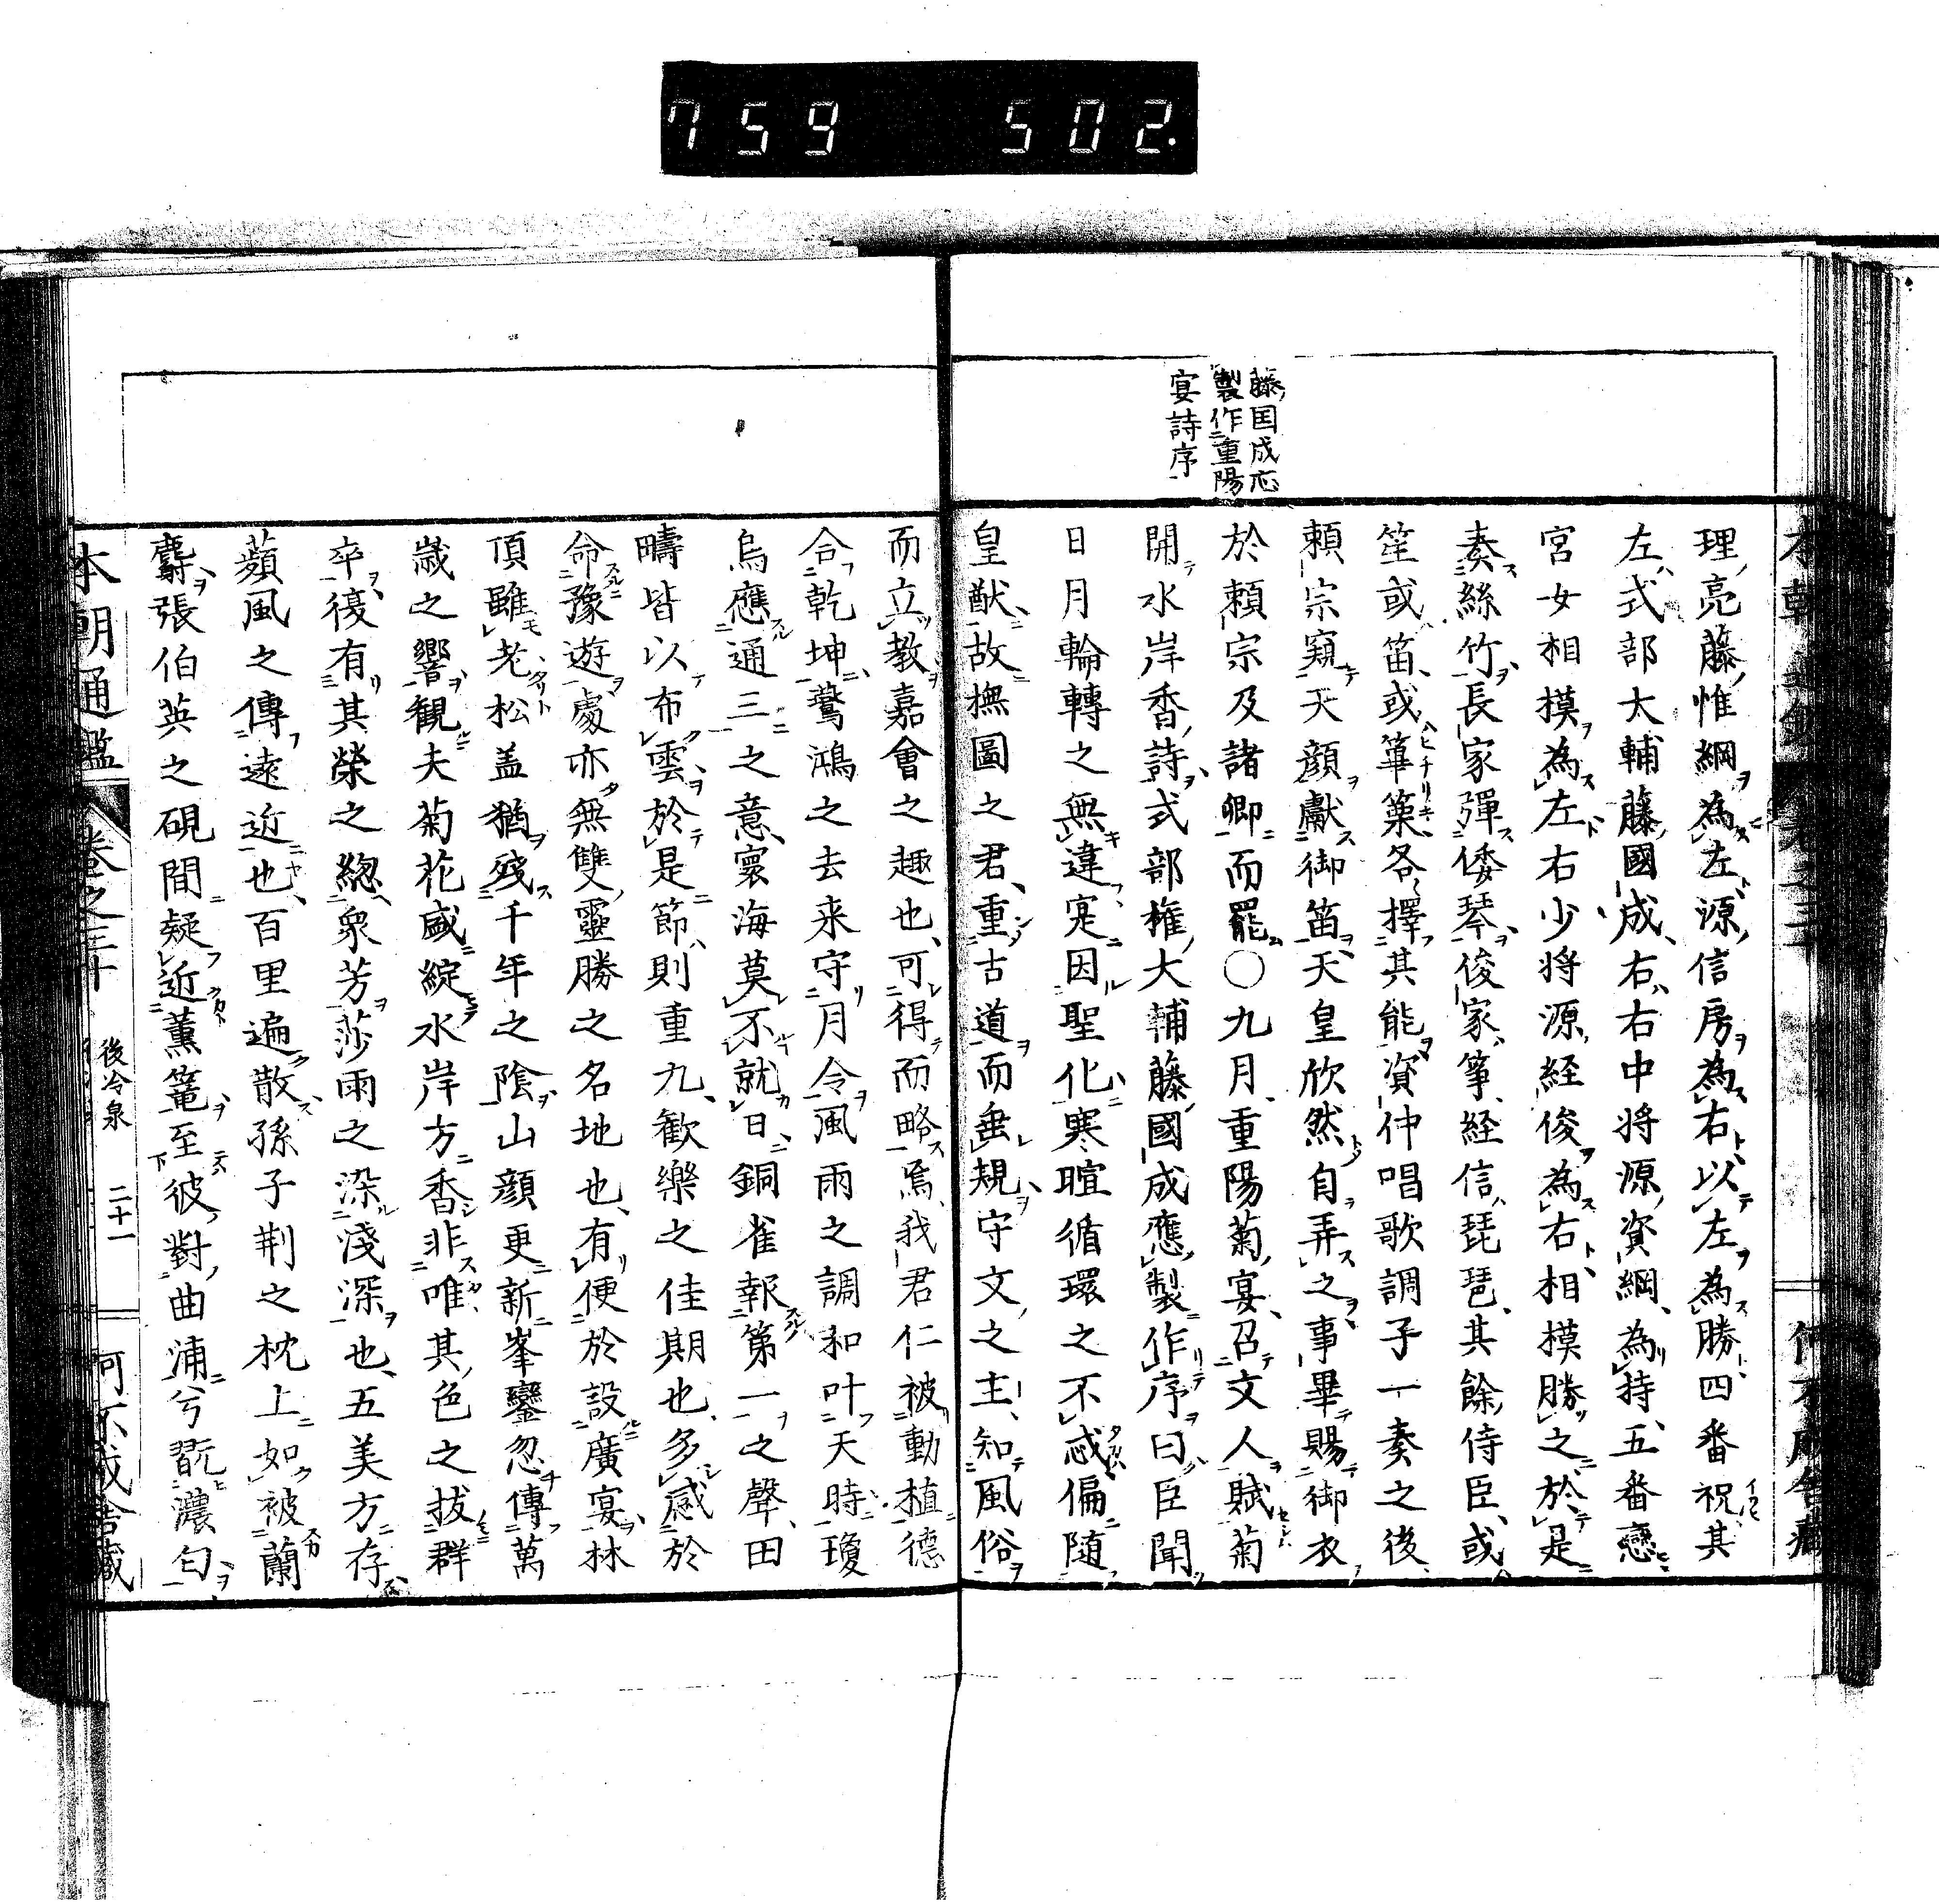 759 502.
藤国成応
製作重陽
宴詩序
理亮藤惟綱為左源信房為右以左為勝四番祝其
左式部大輔藤國成右右中将源資綱為持五番戀
宮女相模為左右少将源経俊為右相模勝之於是
奏絲竹長家彈倭琴俊家箏経信琵琶其餘侍臣或
笙或笛或篳篥各擇其能資仲唱歌調子一奏之後
頼宗窺天顔獻御笛天皇欣然自弄之事畢賜御衣
於頼宗及諸卿而罷〇九月重陽菊宴召文人賦菊
開水岸香詩式部権大輔藤國成應製作序曰臣聞
日月輪轉之無違寔因聖化寒暄循環之不忒偏随
皇猷故撫圖之君重古道而垂規守文之主知風俗
而立教嘉會之趣也可得而略焉我君仁被動植徳
合乾坤鷺鴻之去来守月令風雨之調和叶天時瓊
烏應通三之意寰海莫不就日銅雀報第一之聲田
疇皆以布雲於是節則重九歡樂之佳期也多感於
命豫遊處亦無雙靈勝之名地也有便於設廣宴林
頂雖老松盖猶殘千年之陰山顔更新峯巒忽傳萬
歳之響觀夫菊花盛綻水岸方香非唯其色之抜群
卒復有其榮之縂衆芳莎雨之染淺深也五美方存
蘋風之傳遠近也百里遍散孫子荆之枕上如被蘭
麝張伯英之硯間疑近薫篭至彼對曲浦兮翫濃匂
本朝通鑑 卷之三十 後冷泉 二十一